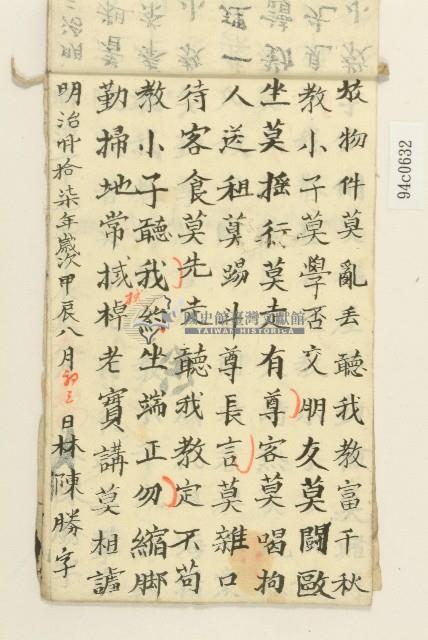 放物件莫亂丢聽我教富千秋
教小子莫學否交朋友莫鬪毆
坐莫摇行莫走有尊客莫喝拘
人送租莫踢斗尊長言莫雜口
待客食莫先走聽我教定不苟
教小子聽我約坐端正勿縮脚
勤掃地常棹老實講莫相謔
明治卅拾柒年歲次甲辰八月初三日林陳勝字
國史館臺灣文獻館
TAIWAN HISTORICA
94c0632